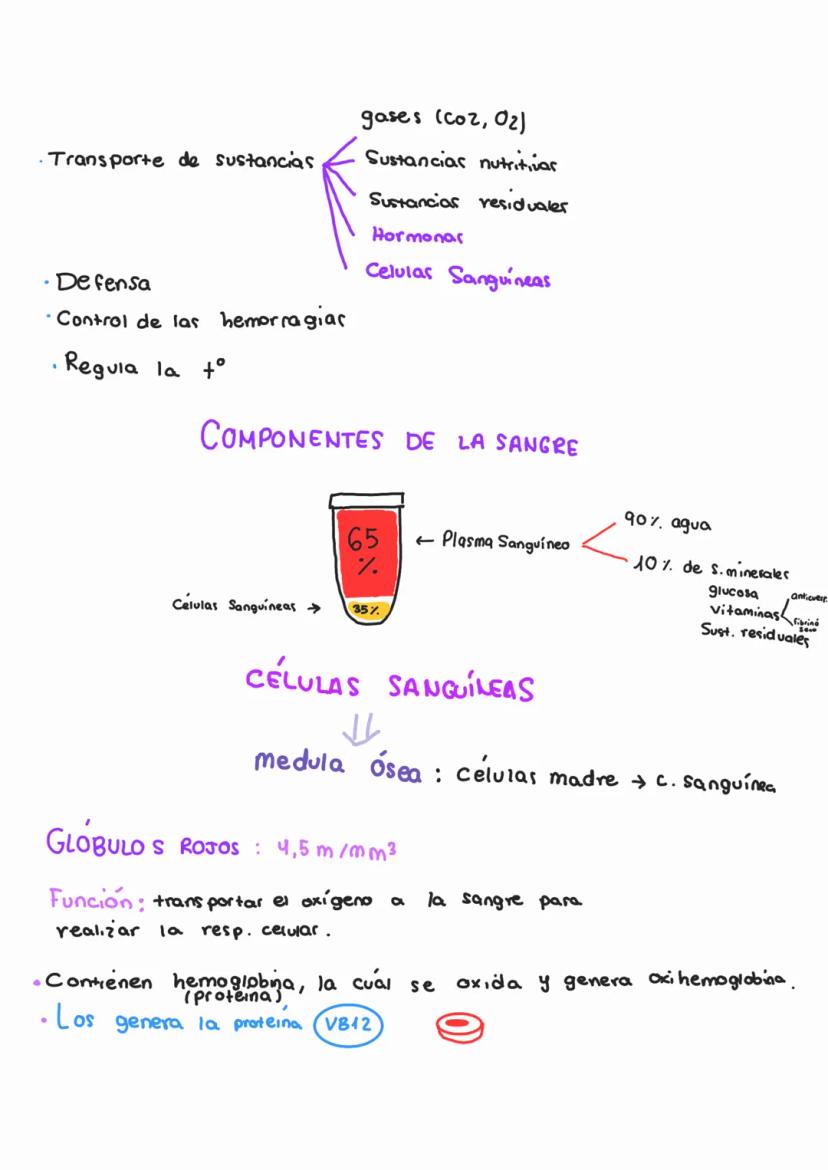 gases (CO2, O2)
· Transporte de sustancias
Sustancias nutritivas
Sustancias residuales
Hormonas
Celulas Sanguíneas
· Defensa
· Control de las hemorragias
· Regula la tº
COMPONENTES DE LA SANGRE
65
%
35%
← Plasma Sanguíneo
Células Sanguíneas →
90% agua
10% de s. minerales
glucosa
vitaminas
Sust. residuales
CÉLULAS SANGUÍNEAS
medula ósea : células madre → c. sanguínea
GLÓBULOS ROJOS : 4,5 m/mm³
Función: transportar el oxígeno a la sangre para
realizar la resp. celular.
· Contienen hemoglobina, la cuál se oxida y genera oxihemoglobina.
(proteína)
· Los genera la proteína VB12